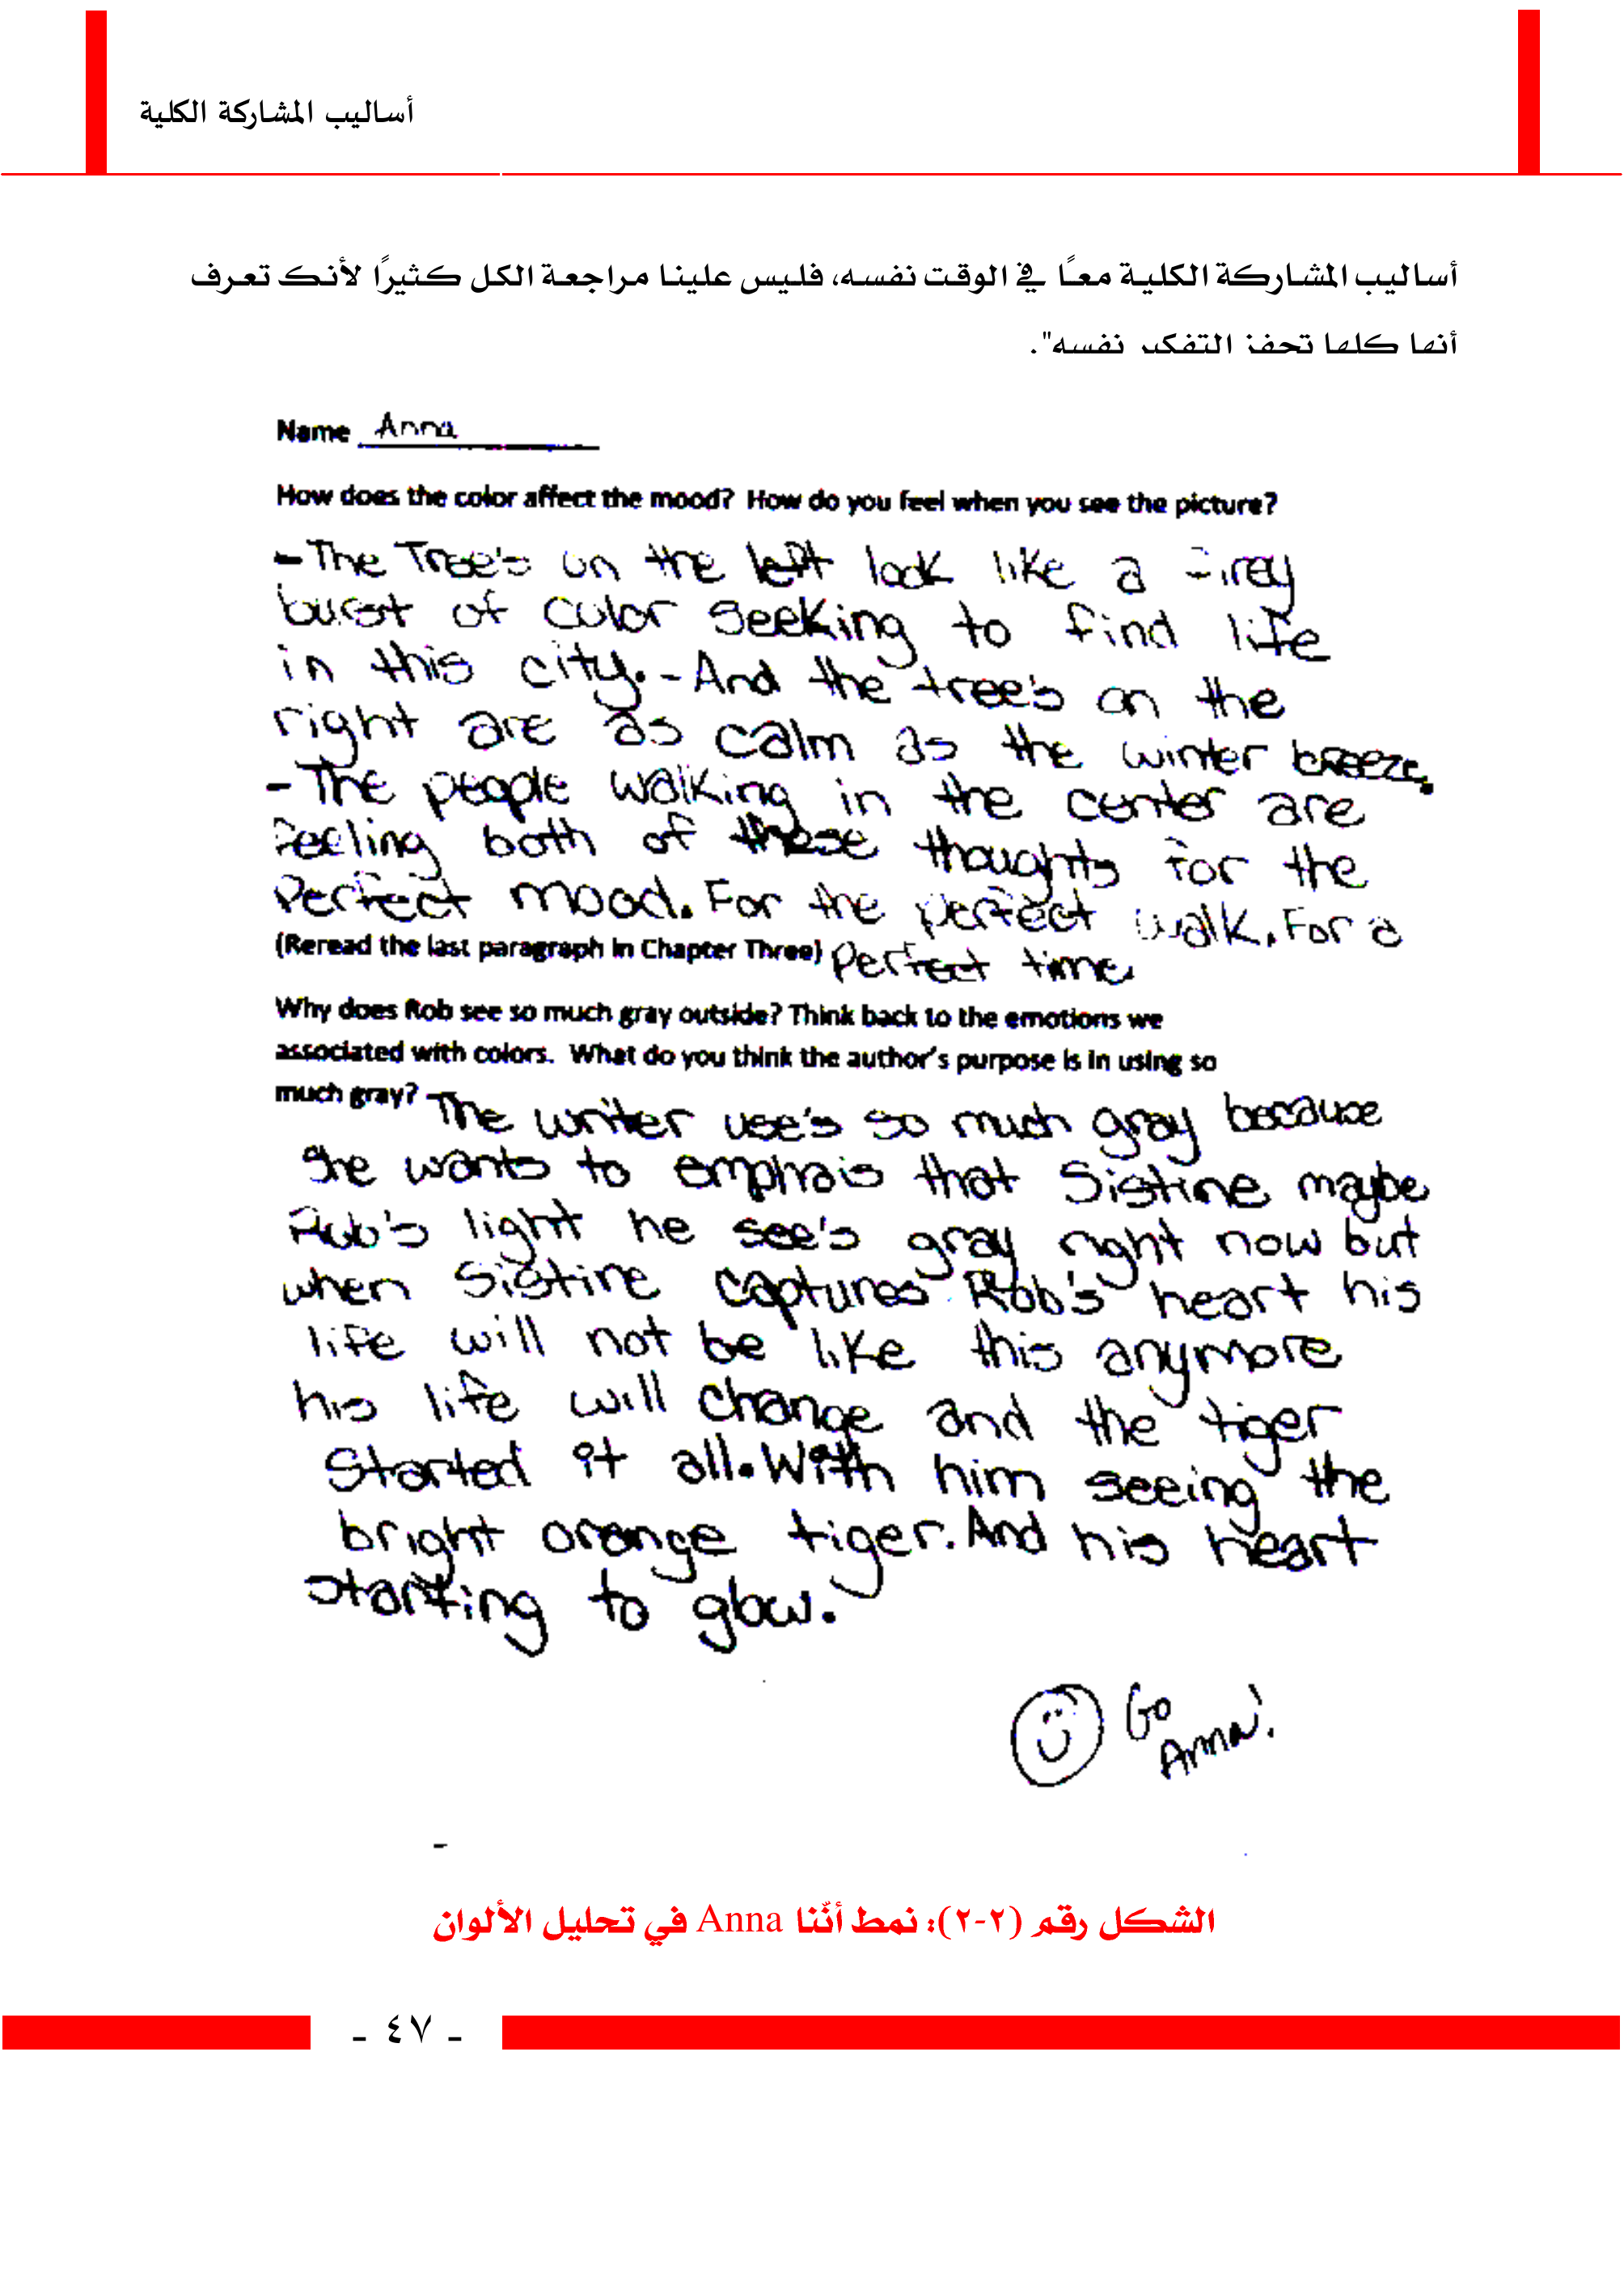 أساليب المشاركة الكلية
أساليب المشاركة الكلية معًا في الوقت نفسه، فليس علينا مراجعة الكل كثيرًا لأنك تعرف
أنها كلها تحفز التفكير نفسه".
Name Anna
How does the color affect the mood? How do you feel when you see the picture?
- The Tree's on the left look like a firey
burst of color seeking to find life
in this city. - And the tree's on the
right are as calm as the winter breeze.
- The people walking in the center are
feeling both of these thoughts for the
Perfect mood. For the perfect walk. For a
(Reread the last paragraph in Chapter Three) perfect time
Why does Rob see so much gray outside? Think back to the emotions we
associated with colors. What do you think the author's purpose is in using so
much gray? The writer use's so much gray because
she wants to emphais that Sistine maybe
Rob's light he see's gray right now but
when Sistine captures Rob's heart his
life will not be like this anymore
his life will change and the tiger
Started it all. With him seeing the
bright orange tiger. And his heart
starting to glow.
Go
Anna!
الشكل رقم (٢-٢): نمط أنّنا Anna في تحليل الألوان
- ٤٧ -